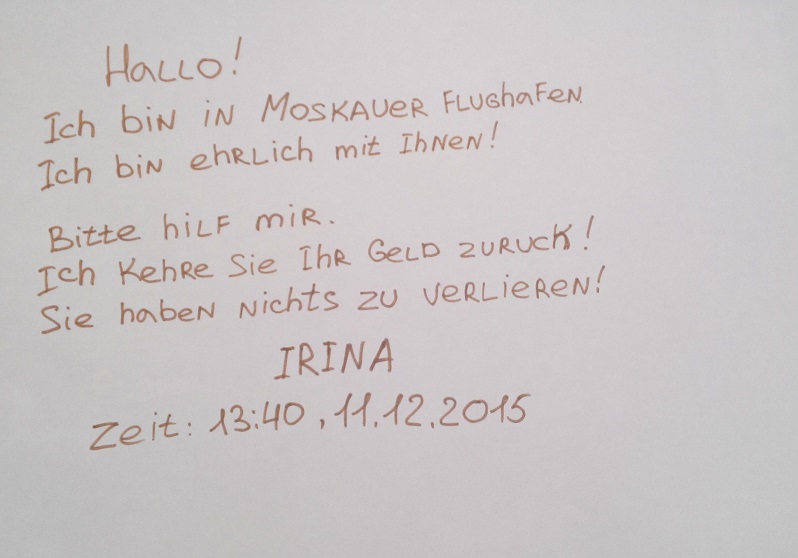 Hallo!
Ich bin in Moskauer Flughafen
Ich bin ehrlich mit Ihnen!
Bitte hilf mir.
Ich kehre Sie Ihr Geld zuruck!
Sie haben nichts zu verlieren!
IRINA
Zeit: 13:40, 11.12.2015